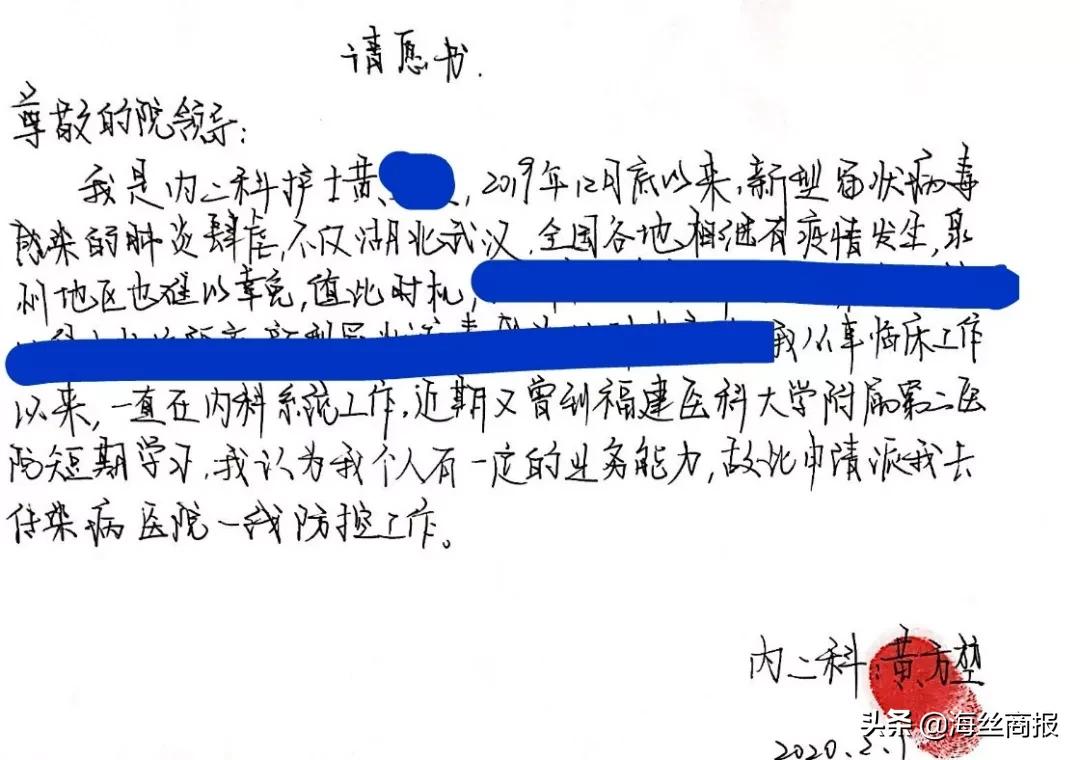 请愿书.
尊敬的院领导:
我是内二科护士黄,2019年12月底以来,新型冠状病毒
感染的肺炎肆虐,不仅湖北武汉,全国各地相继有疫情发生,泉
州地区也难以幸免,值此时机,
我从事临床工作
以来,一直在内科系统工作,近期又曾到福建医科大学附属第二医
院短期学习,我认为我个人有一定的业务能力,故此申请派我去
传染病医院一线防控工作。
内二科:黄方堃
2020.2.1
头条 @海丝商报